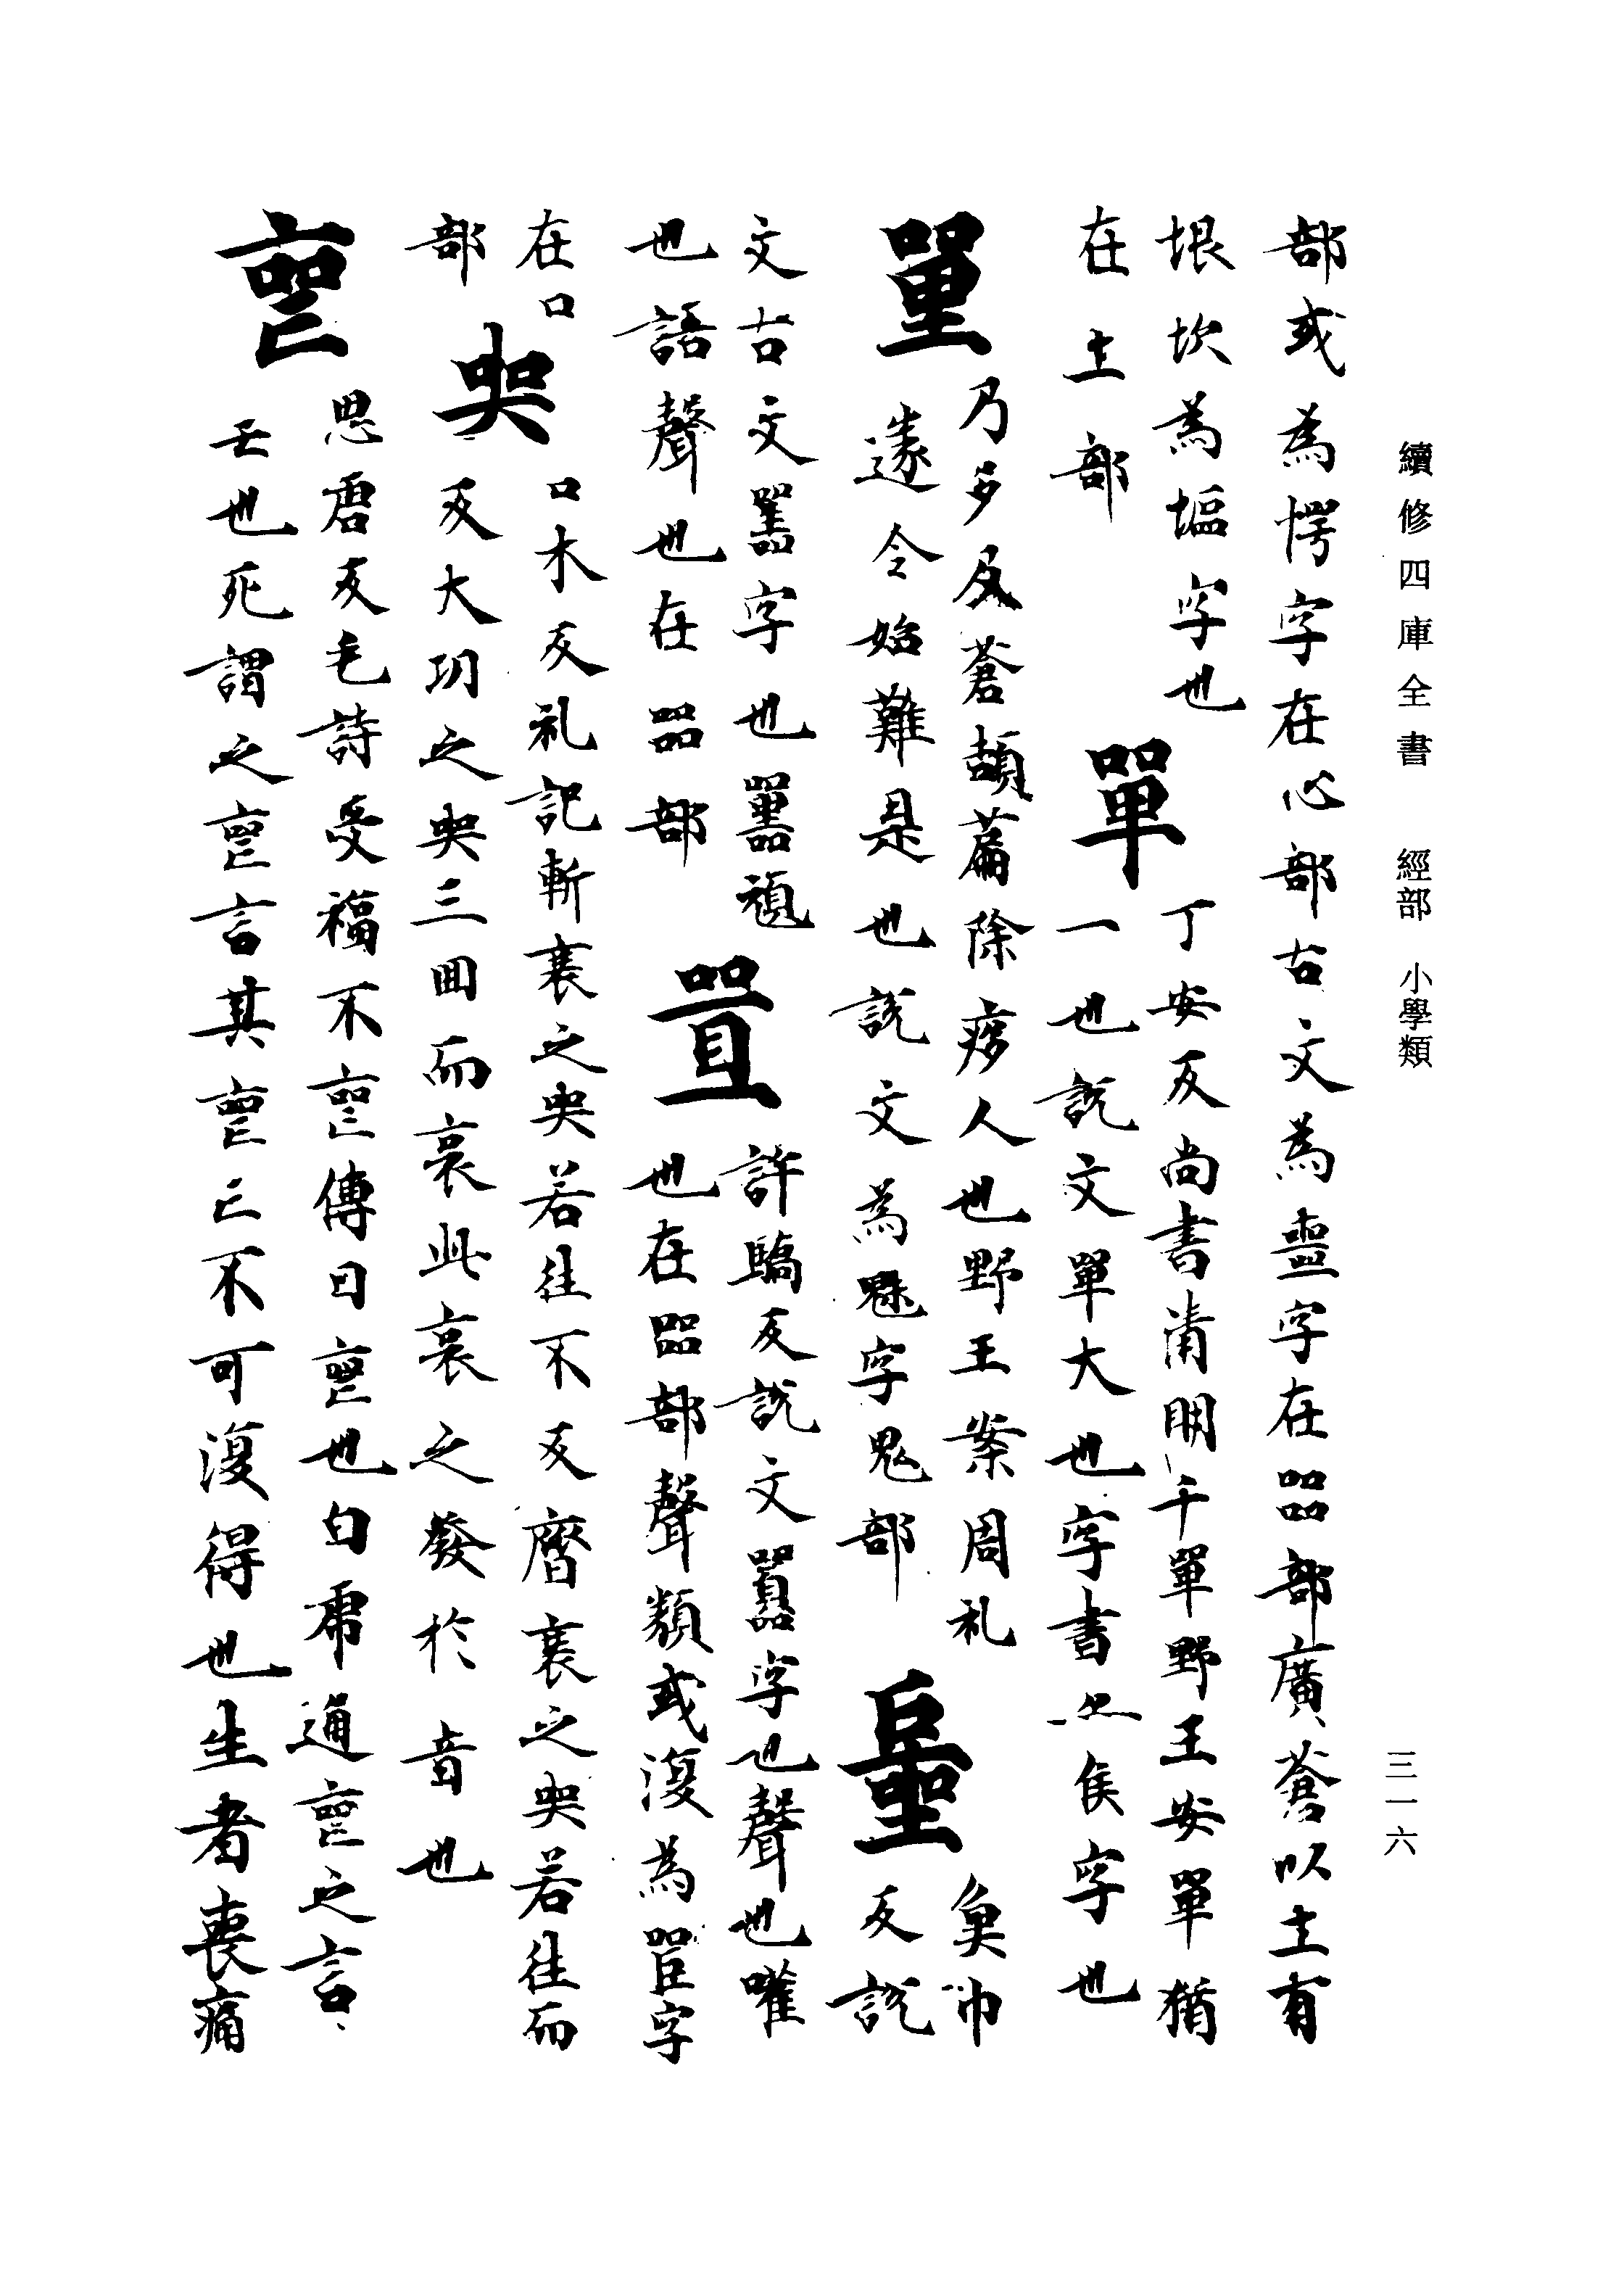 續修四庫全書 經部 小學類
三一六
部或為愕字在心部古文為噩字在㗊部廣蒼以土有
垠坎為堮字也
在土部
單
丁安反尚書清明于單野王安單猶
一也說文單大也字書亦隻字也
乃多反蒼頡篇除疫人也野王案周礼
遂令始難是也說文為魌字鬼部
臾巾反說
文古文嚚字也嚚頑
也語聲也在㗊部
許驕反說文嚻字也聲也嚾
也在㗊部聲類或復為㗋字
在口部
哭
口木反礼記斬衰之哭若往不反齊衰之哭若往而
反大功之哭三曲而哀此哀之發於音也
喪
思唐反毛詩受福不喪傳曰喪也白虎通喪之言
亡也死謂之喪言其喪亡不可復得也生者喪痛